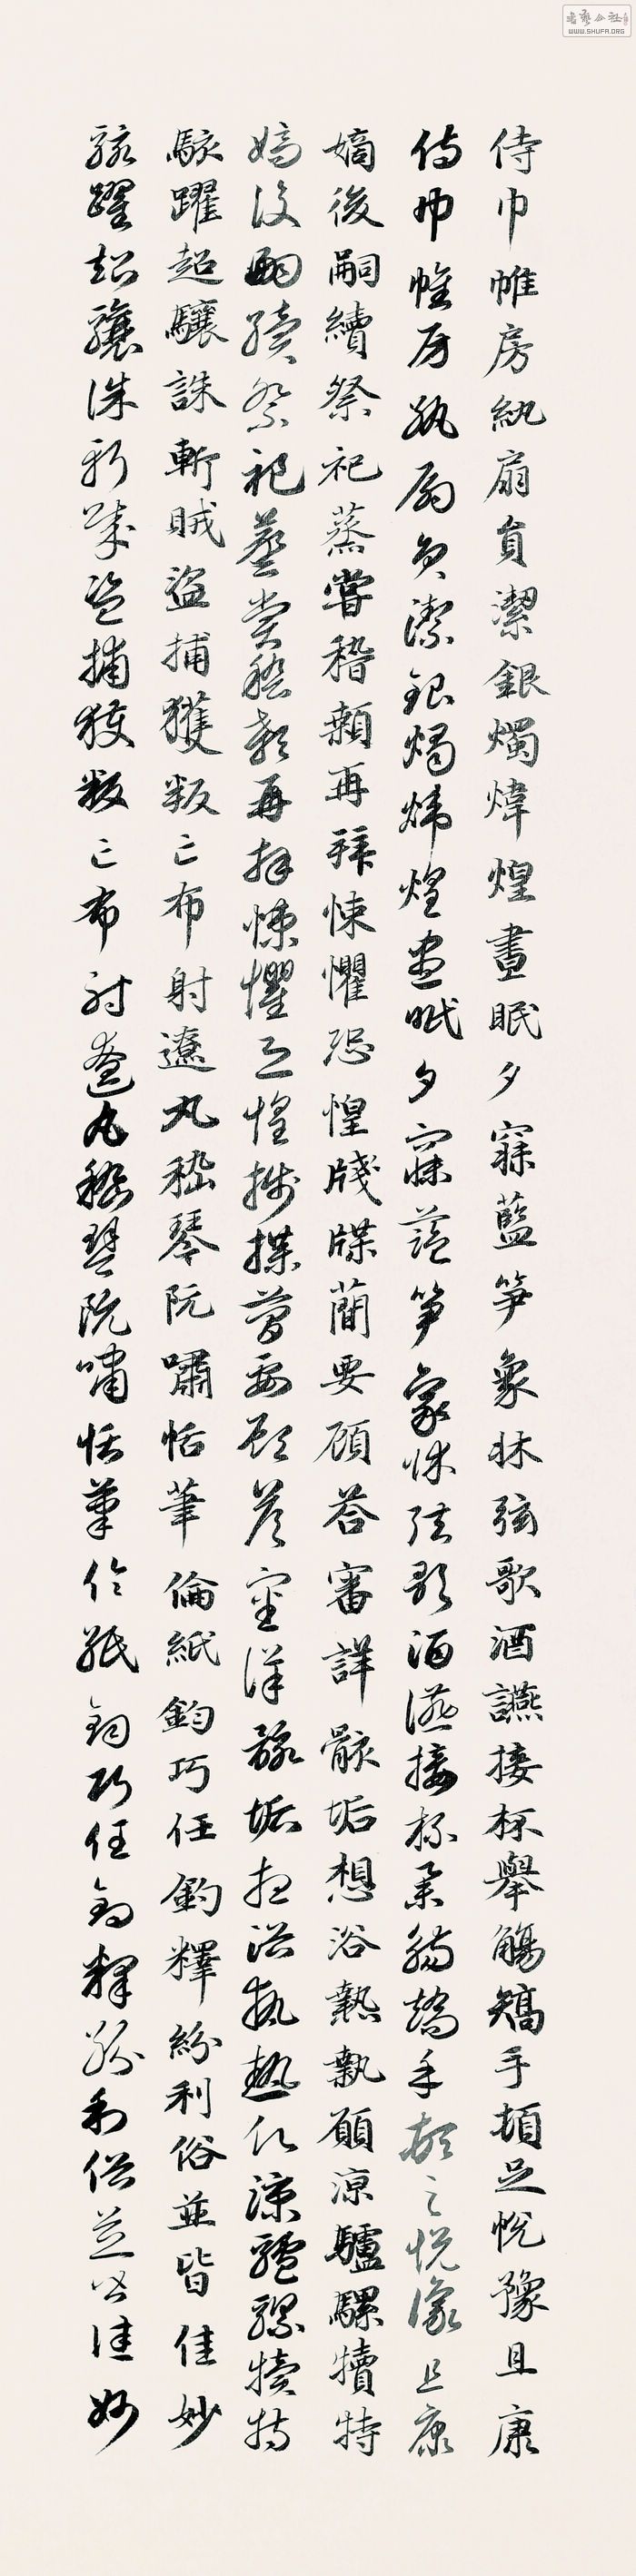 侍巾帷房紈扇員潔銀燭煒煌晝眠夕寐藍筍象牀弦歌酒讌接杯舉觴矯手頓足悅豫且康
侍巾帷房紈扇員潔銀燭煒煌晝眠夕寐藍筍象牀弦歌酒讌接杯舉觴矯手頓足悅豫且康
嫡後嗣續祭祀蒸嘗稽顙再拜悚懼恐惶牋牒蕳要顧荅審詳骸垢想浴熱執願涼驢騾犢特
嫡後嗣續祭祀蒸嘗稽顙再拜悚懼恐惶牋牒蕳要顧荅審詳骸垢想浴執熱願涼驢騾犢特
駭躍超驤誅斬賊盜捕獲叛亡布射遼丸嵇琴阮嘯恬筆倫紙鈞巧任釣釋紛利俗並皆佳妙
駭躍超驤誅斬賊盜捕獲叛亡布射遼丸嵇琴阮嘯恬筆倫紙鈞巧任釣釋紛利俗並皆佳妙
WWW.SHUFA.ORG